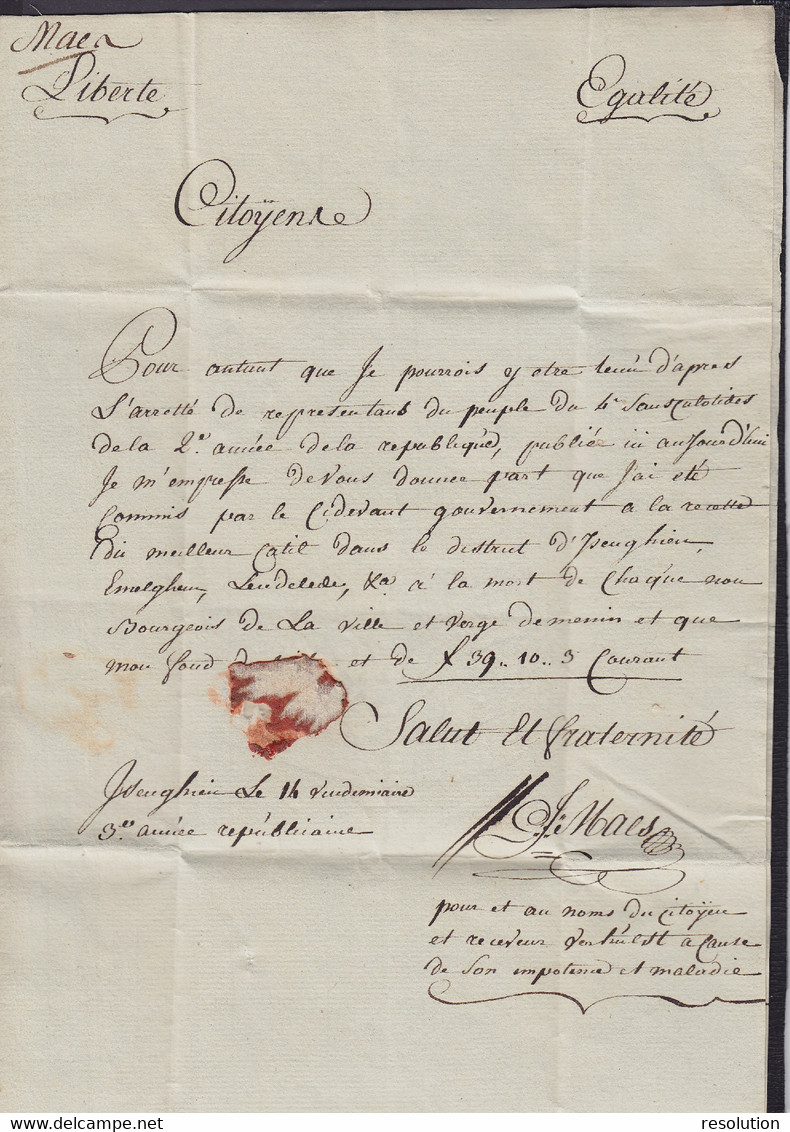 Maes
Liberte Egalité
Citoÿens
Pour autant que Je pourrois y etre tenû d'apres
L'arretté de representans du peuple du 4e Sansculotides
de la 2e année de la republique, publiée ici aujourd'hui
Je m'empresse de vous donner part que J'ai eté
Commis par le Cidevant gouvernement a la recette
du meilleur Catil dans le district d'Iseughien,
Emelghem, Lendelede, &a à la mort de Chaque non
Bourgeois de La ville et verge de menin et que
mon fond et de £ 39.. 10.. 3 Courant
Salut Et fraternité
Iseughien Le 14 vendemiaire
3e année républicaine
J: Maes
pour et au noms du Citoÿen
et receveur Verhûlst a Cause
de Son impotence et maladie
resolution